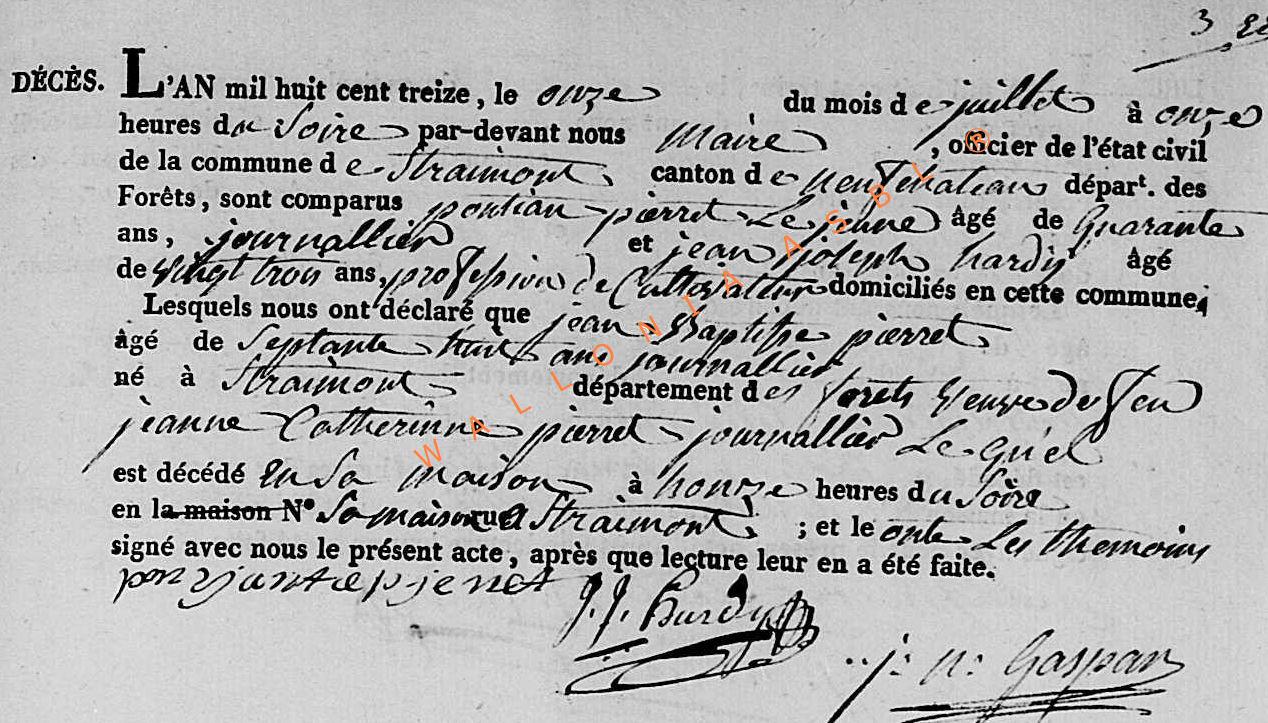 3
DÉCÈS. L'AN mil huit cent treize, le onze du mois de juillet à onze
heures du Soire par-devant nous Maire, officier de l'état civil
de la commune de Straimont canton de neufchateau départ. des
Forêts, sont comparus pontian pierret Le jeune âgé de Quarante
ans, journallier et jean joseph hardÿ âgé
de Vingt trois ans, profession de Cultivateur domiciliés en cette commune;
Lesquels nous ont déclaré que jean Baptiste pierret
âgé de Septante huit ans journallier
né à Straimont département des forets veuve de feu
jeanne Catherinne pierret journallier Le quel
est décédé en Sa maison à honze heures du Soire
en la maison N° Sa maison rue Straimont ; et le onte Les themoins
signé avec nous le présent acte, après que lecture leur en a été faite.
J. J. Hardy
j: n: Gaspar
WALLONIA ASBL ©